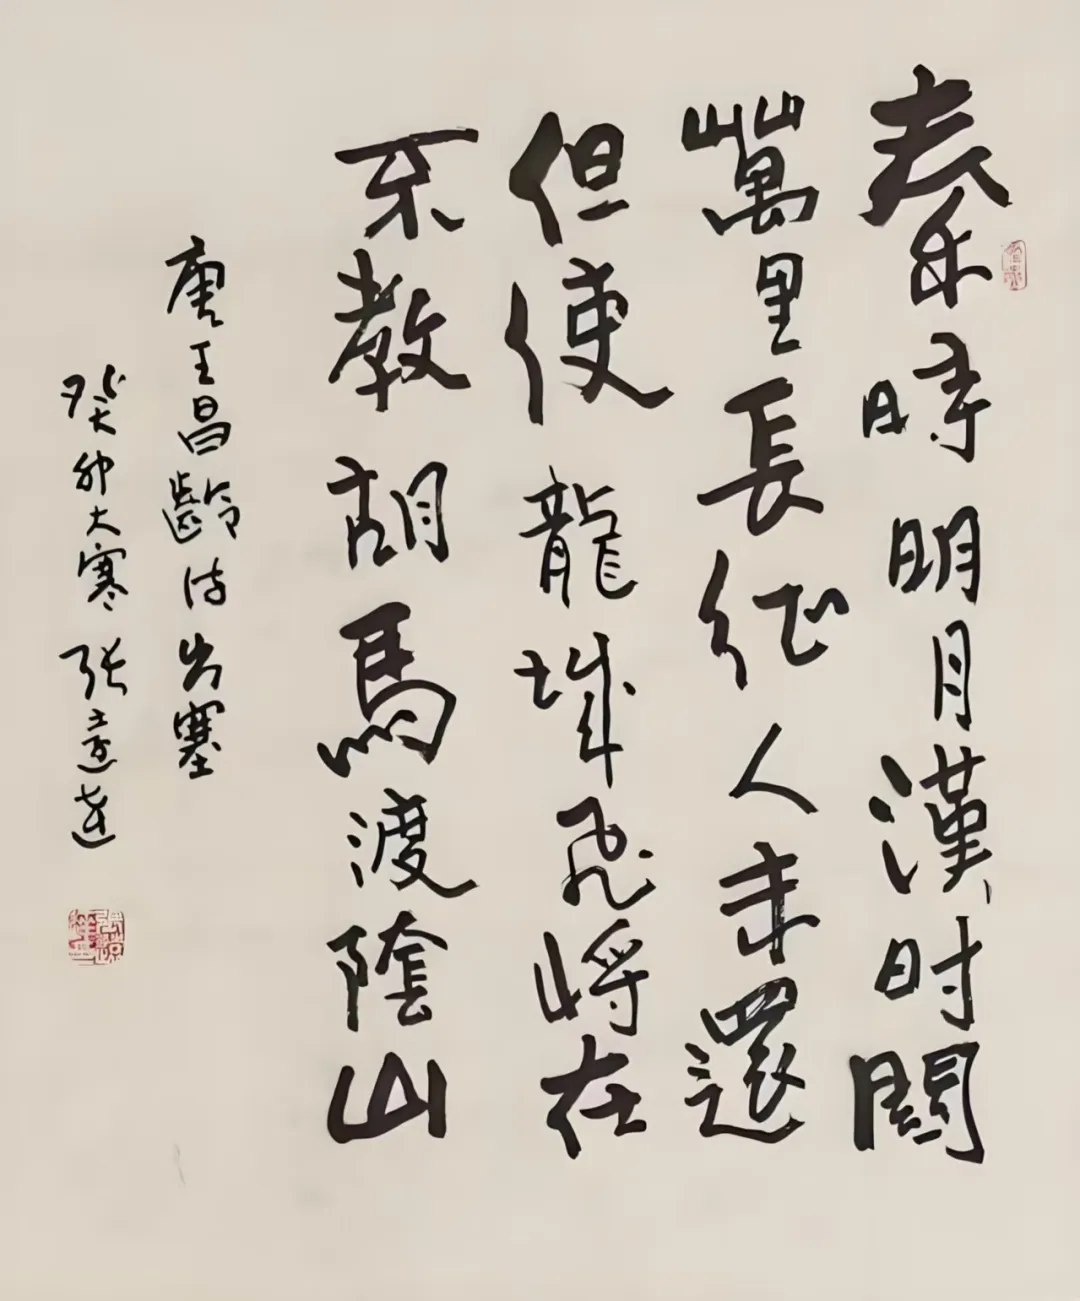 秦時明月漢时関
萬里長征人未還
但使龍城飛将在
不教胡馬渡陰山
唐王昌齡诗出塞
癸卯大寒 张